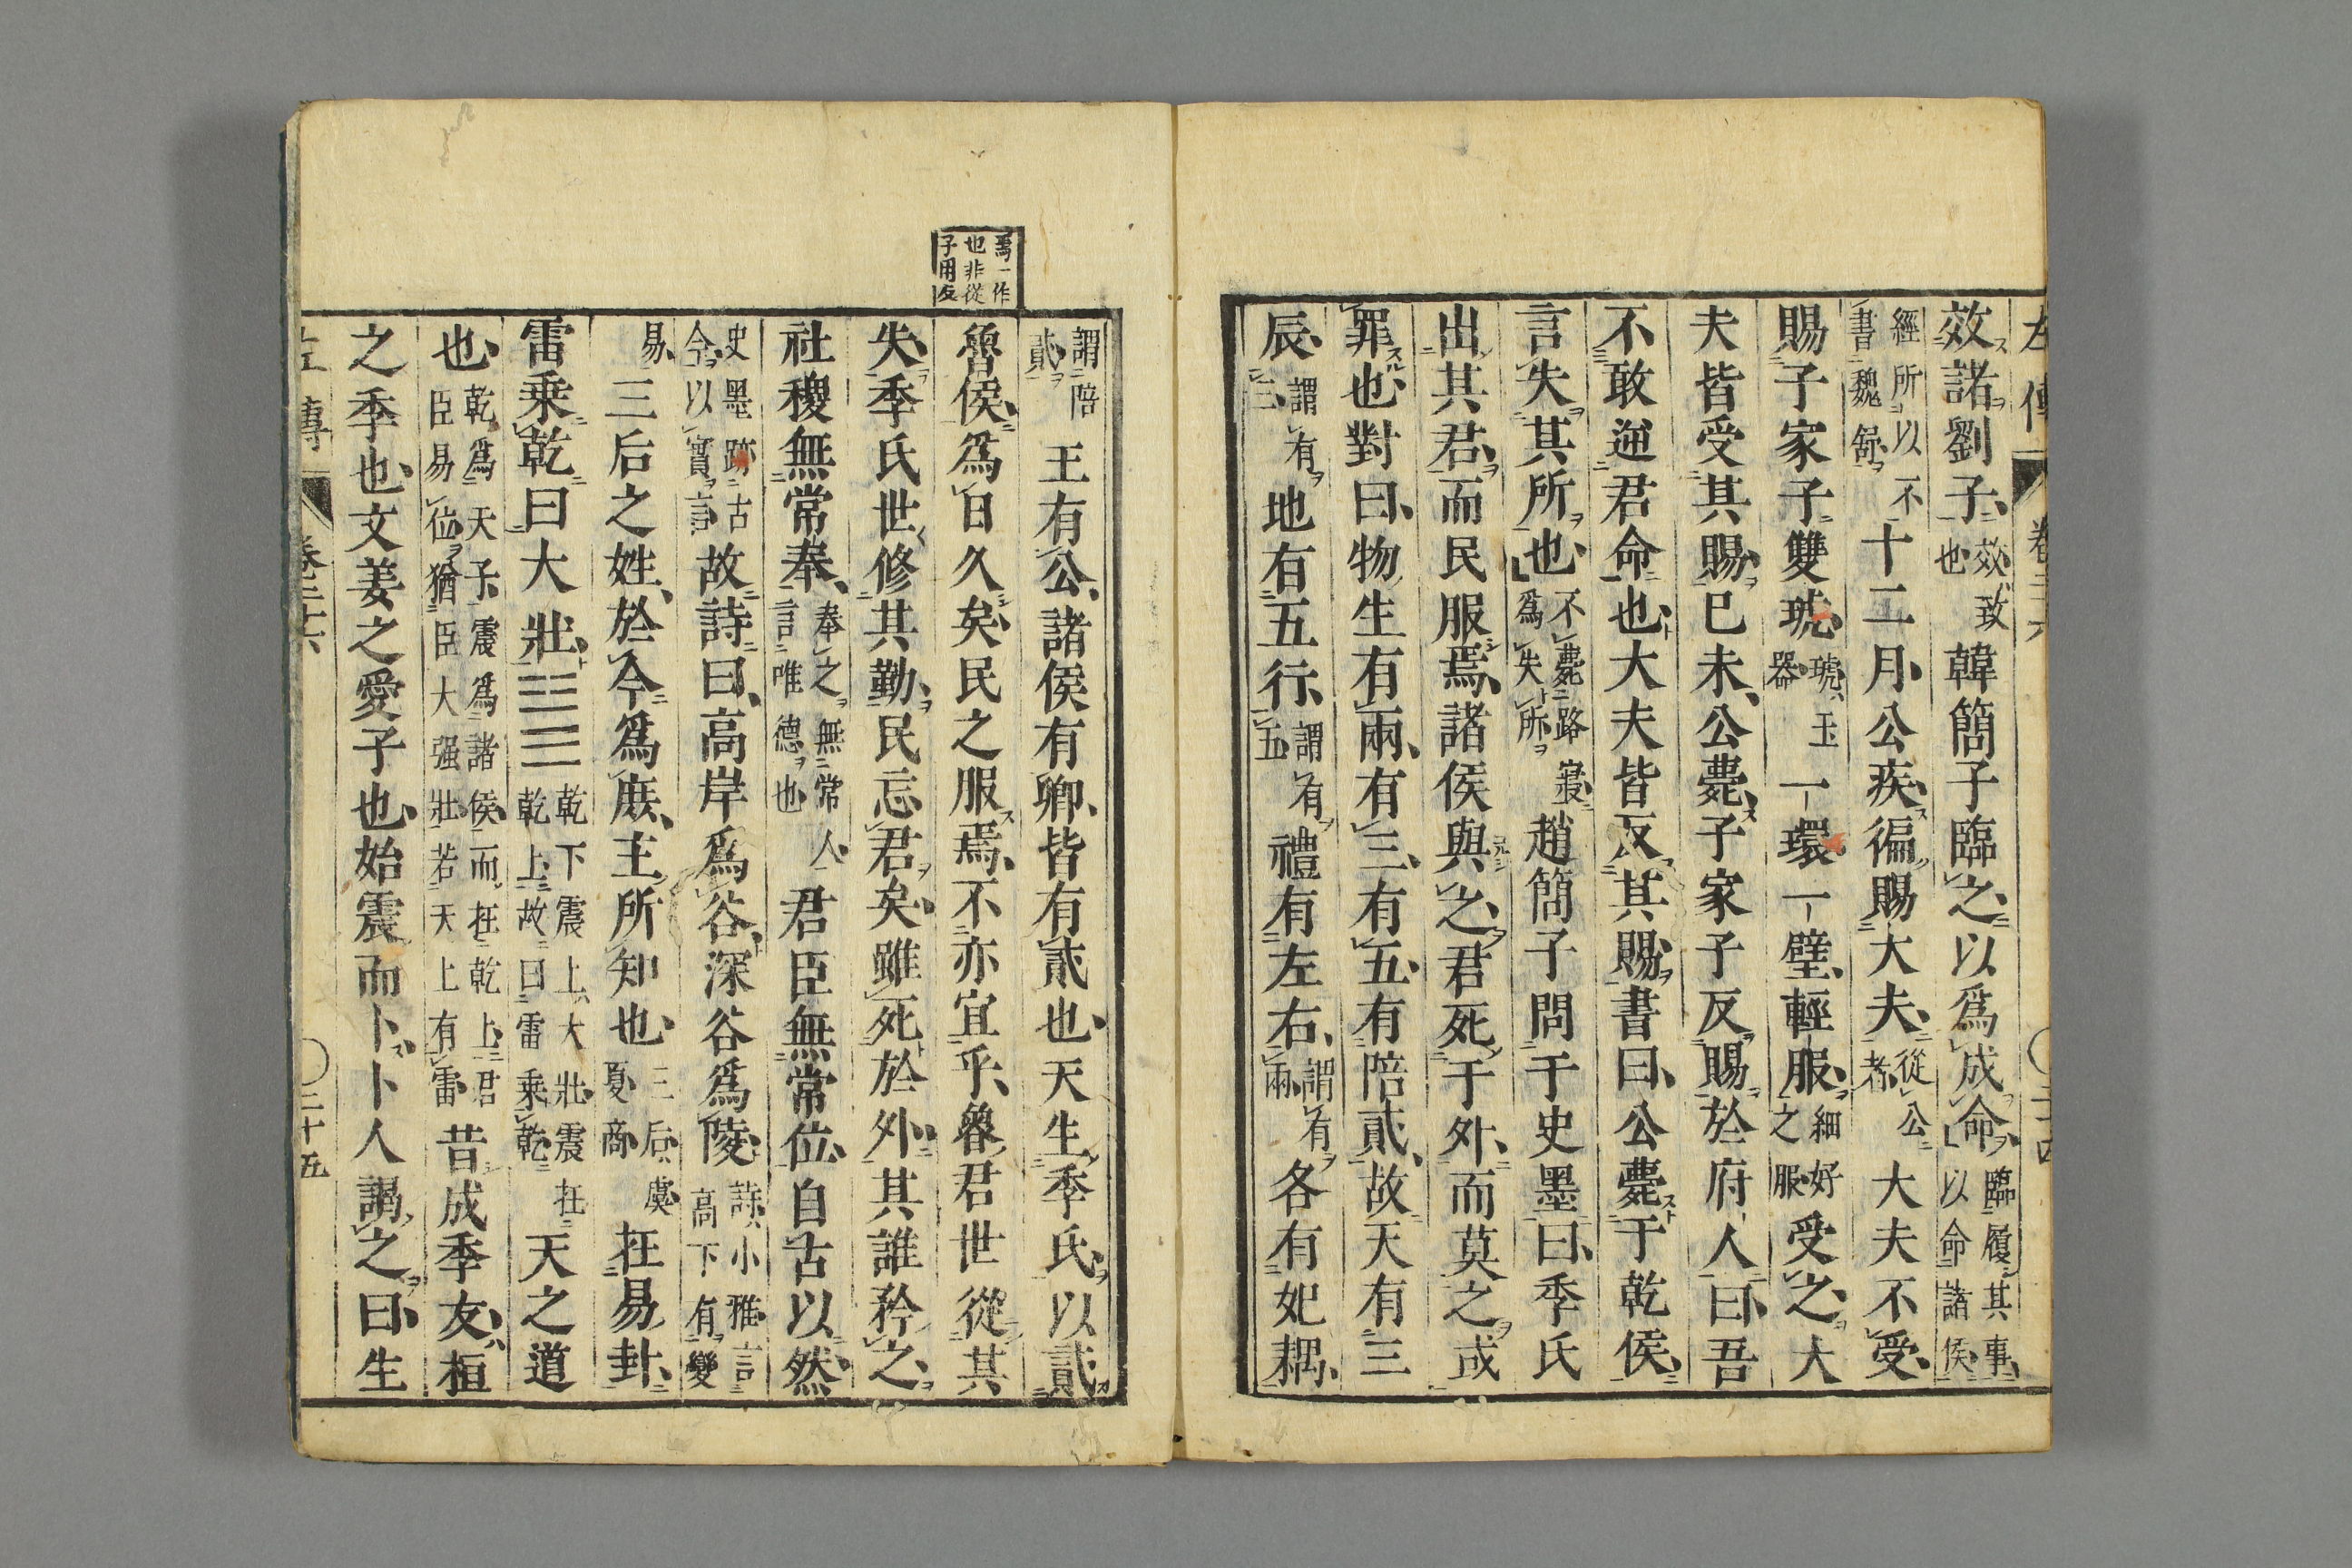 效諸劉子效致也韓簡子臨之以爲成命臨履其事以命諸侯
經所以不書魏舒十二月公疾徧賜大夫從公者大夫不受
賜子家子雙琥琥玉器一環一璧輕服細好之服受之大
夫皆受其賜已未公薨子家子反賜於府人曰吾
不敢逆君命也大夫皆反其賜書曰公薨于乾侯
言失其所也不薨路寢爲失所趙簡子問于史墨曰季氏
出其君而民服焉諸侯與之君死于外而莫之或
罪也對曰物生有兩有三有五有陪貳故天有三
辰謂有三地有五行謂有五禮有左右謂有兩各有妃耦
謂陪貳王有公諸侯有卿皆有貳也天生季氏以貳
魯侯爲日久矣民之服焉不亦宜乎魯君世從其
失季氏世修其勤民忘君矣雖死於外其誰矜之
社稷無常奉奉之無常人言唯德也君臣無常位自古以然
史墨跡古今以實言故詩曰高岸爲谷深谷爲陵詩小雅言高下有變
易三后之姓於今爲庶主所知也三后虞夏商在易卦
雷乗乾曰大壯䷡乾下震上大壯震在乾上故曰雷乗乾天之道
也乾爲天子震爲諸侯而在乾上君臣易位猶臣大强壯若天上有雷昔成季友桓
之季也文姜之愛子也始震而卜卜人謁之曰生
爲一作
也非從
子用友
左傳
卷三十六
二十五